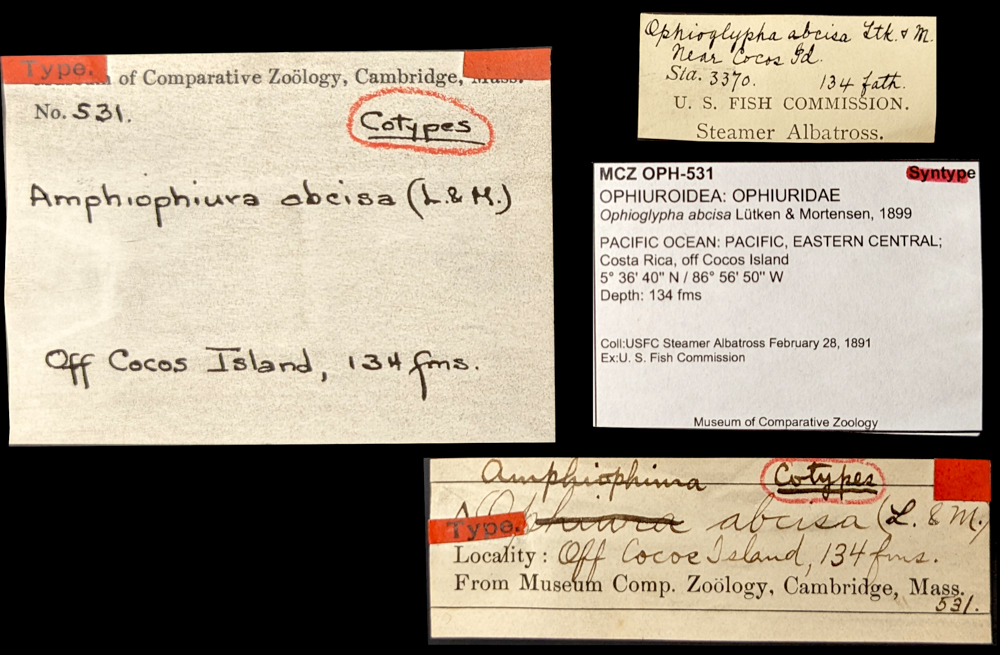 Type.
of Comparative Zoölogy, Cambridge, Mass.
No. 531.
Cotypes
Amphiophiura abcisa (L. & M.)
Off Cocos Island, 134 fms.
Ophioglypha abcisa Ltk. & M.
Near Cocos Id.
Sta. 3370. 134 fath.
U. S. FISH COMMISSION.
Steamer Albatross.
MCZ OPH-531 Syntype
OPHIUROIDEA: OPHIURIDAE
Ophioglypha abcisa Lütken & Mortensen, 1899
PACIFIC OCEAN: PACIFIC, EASTERN CENTRAL;
Costa Rica, off Cocos Island
5° 36' 40" N / 86° 56' 50" W
Depth: 134 fms
Coll:USFC Steamer Albatross February 28, 1891
Ex:U. S. Fish Commission
Museum of Comparative Zoology
Amphiophiura Cotypes
Ophiura abcisa (L. & M.)
Type.
Locality: Off Cocos Island, 134 fms.
From Museum Comp. Zoölogy, Cambridge, Mass.
531.